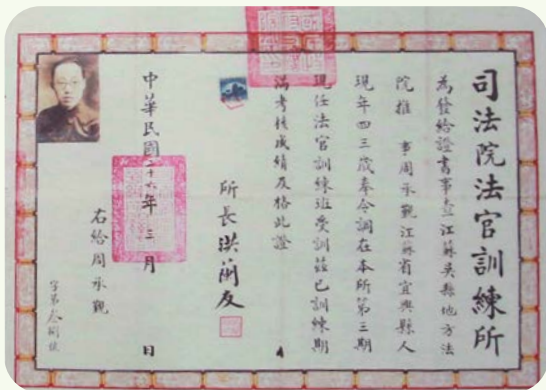 司法院法官訓練所
為發給證書事查江蘇吳縣地方法
院推事周承觀江蘇省宜興縣人
現年四三歲奉令調在本所第三期
現任法官訓練班受訓茲已訓練期
滿考核成績及格此證
所長洪蘭友
中華民國二十六年三月 日
右給周承觀
字第叁 號